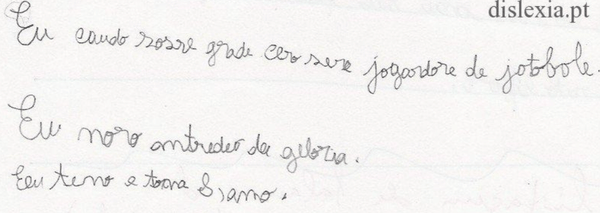 dislexia.pt
Eu caudo sosse grade cero sere jogardore de jotobole.
Eu noro antredeo da geloria.
Eeu teno e toona 8 anno.